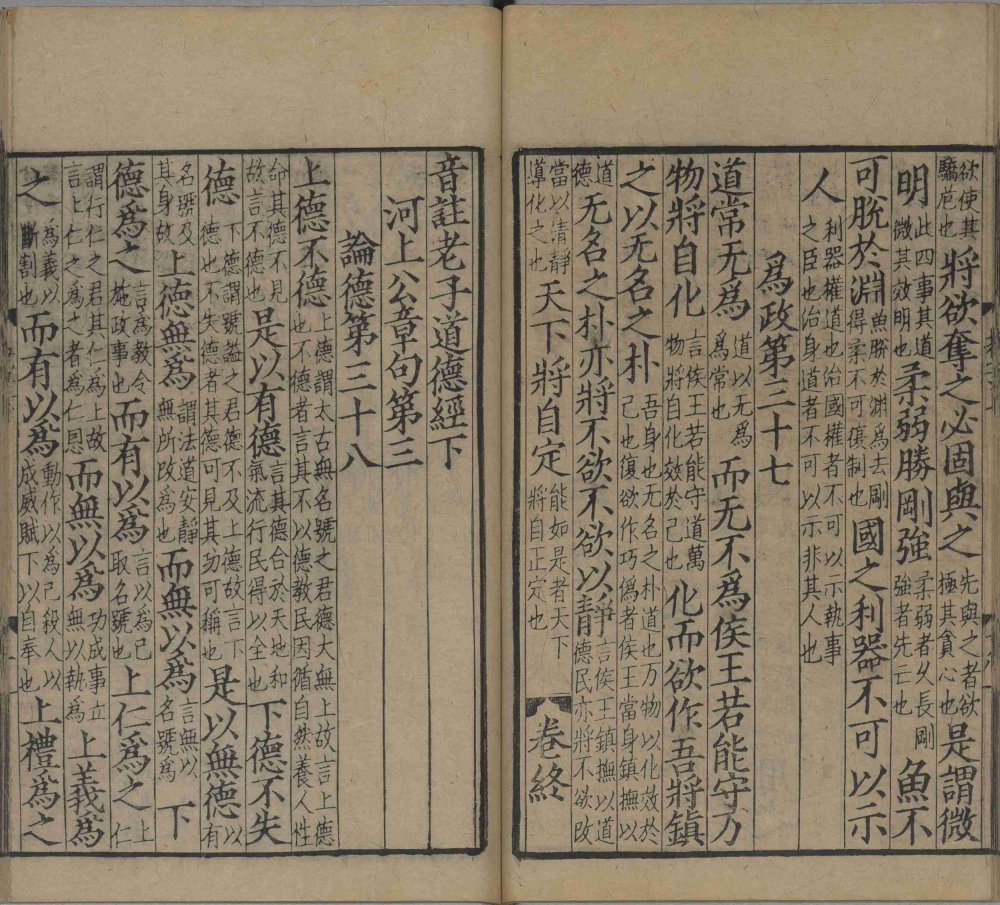 欲使其驕危也將欲奪之必固與之先與之者欲極其貪心也是謂微
明此四事其道微其效明也柔弱勝剛強柔弱者久長剛強者先亡也魚不
可脫於淵魚脫於淵為去剛得柔不可復制也國之利器不可以示
人利器權道也治國權者不可以示執事之臣也治身道者不可以示非其人也
為政第三十七
道常无為道以无為為常也而无不為侯王若能守万
物將自化言侯王若能守道萬物將自化效於己也化而欲作吾將鎮
之以无名之朴吾身也无名之朴道也万物以化效於己也復欲作巧偽者侯王當身鎮撫以
道德无名之朴亦將不欲不欲以靜言侯王鎮撫以道德民亦將不欲改
當以清靜導化之也天下將自定能如是者天下將自正定也 卷終
音註老子道德經下
河上公章句第三
論德第三十八
上德不德上德謂太古無名號之君德大無上故言上德也不德者言其不以德教民因循自然養人性
命其德不見故言不德也是以有德言其德合於天地和氣流行民得以全也下德不失
德下德謂號謚之君德不及上德故言下德也不失德者其德可見其功可稱也是以無德以有
名號及其身故上德無為謂法道安靜無所改為也而無以為言無以名號為下
德為之言為教令施政事也而有以為言以為己取名號也上仁為之上仁
謂行仁之君其仁為上故言上仁之為之者為仁恩而無以為功成事立無以執為上義為
之為義以斷割也而有以為動作以為己殺人以成威賦下以自奉也上禮為之